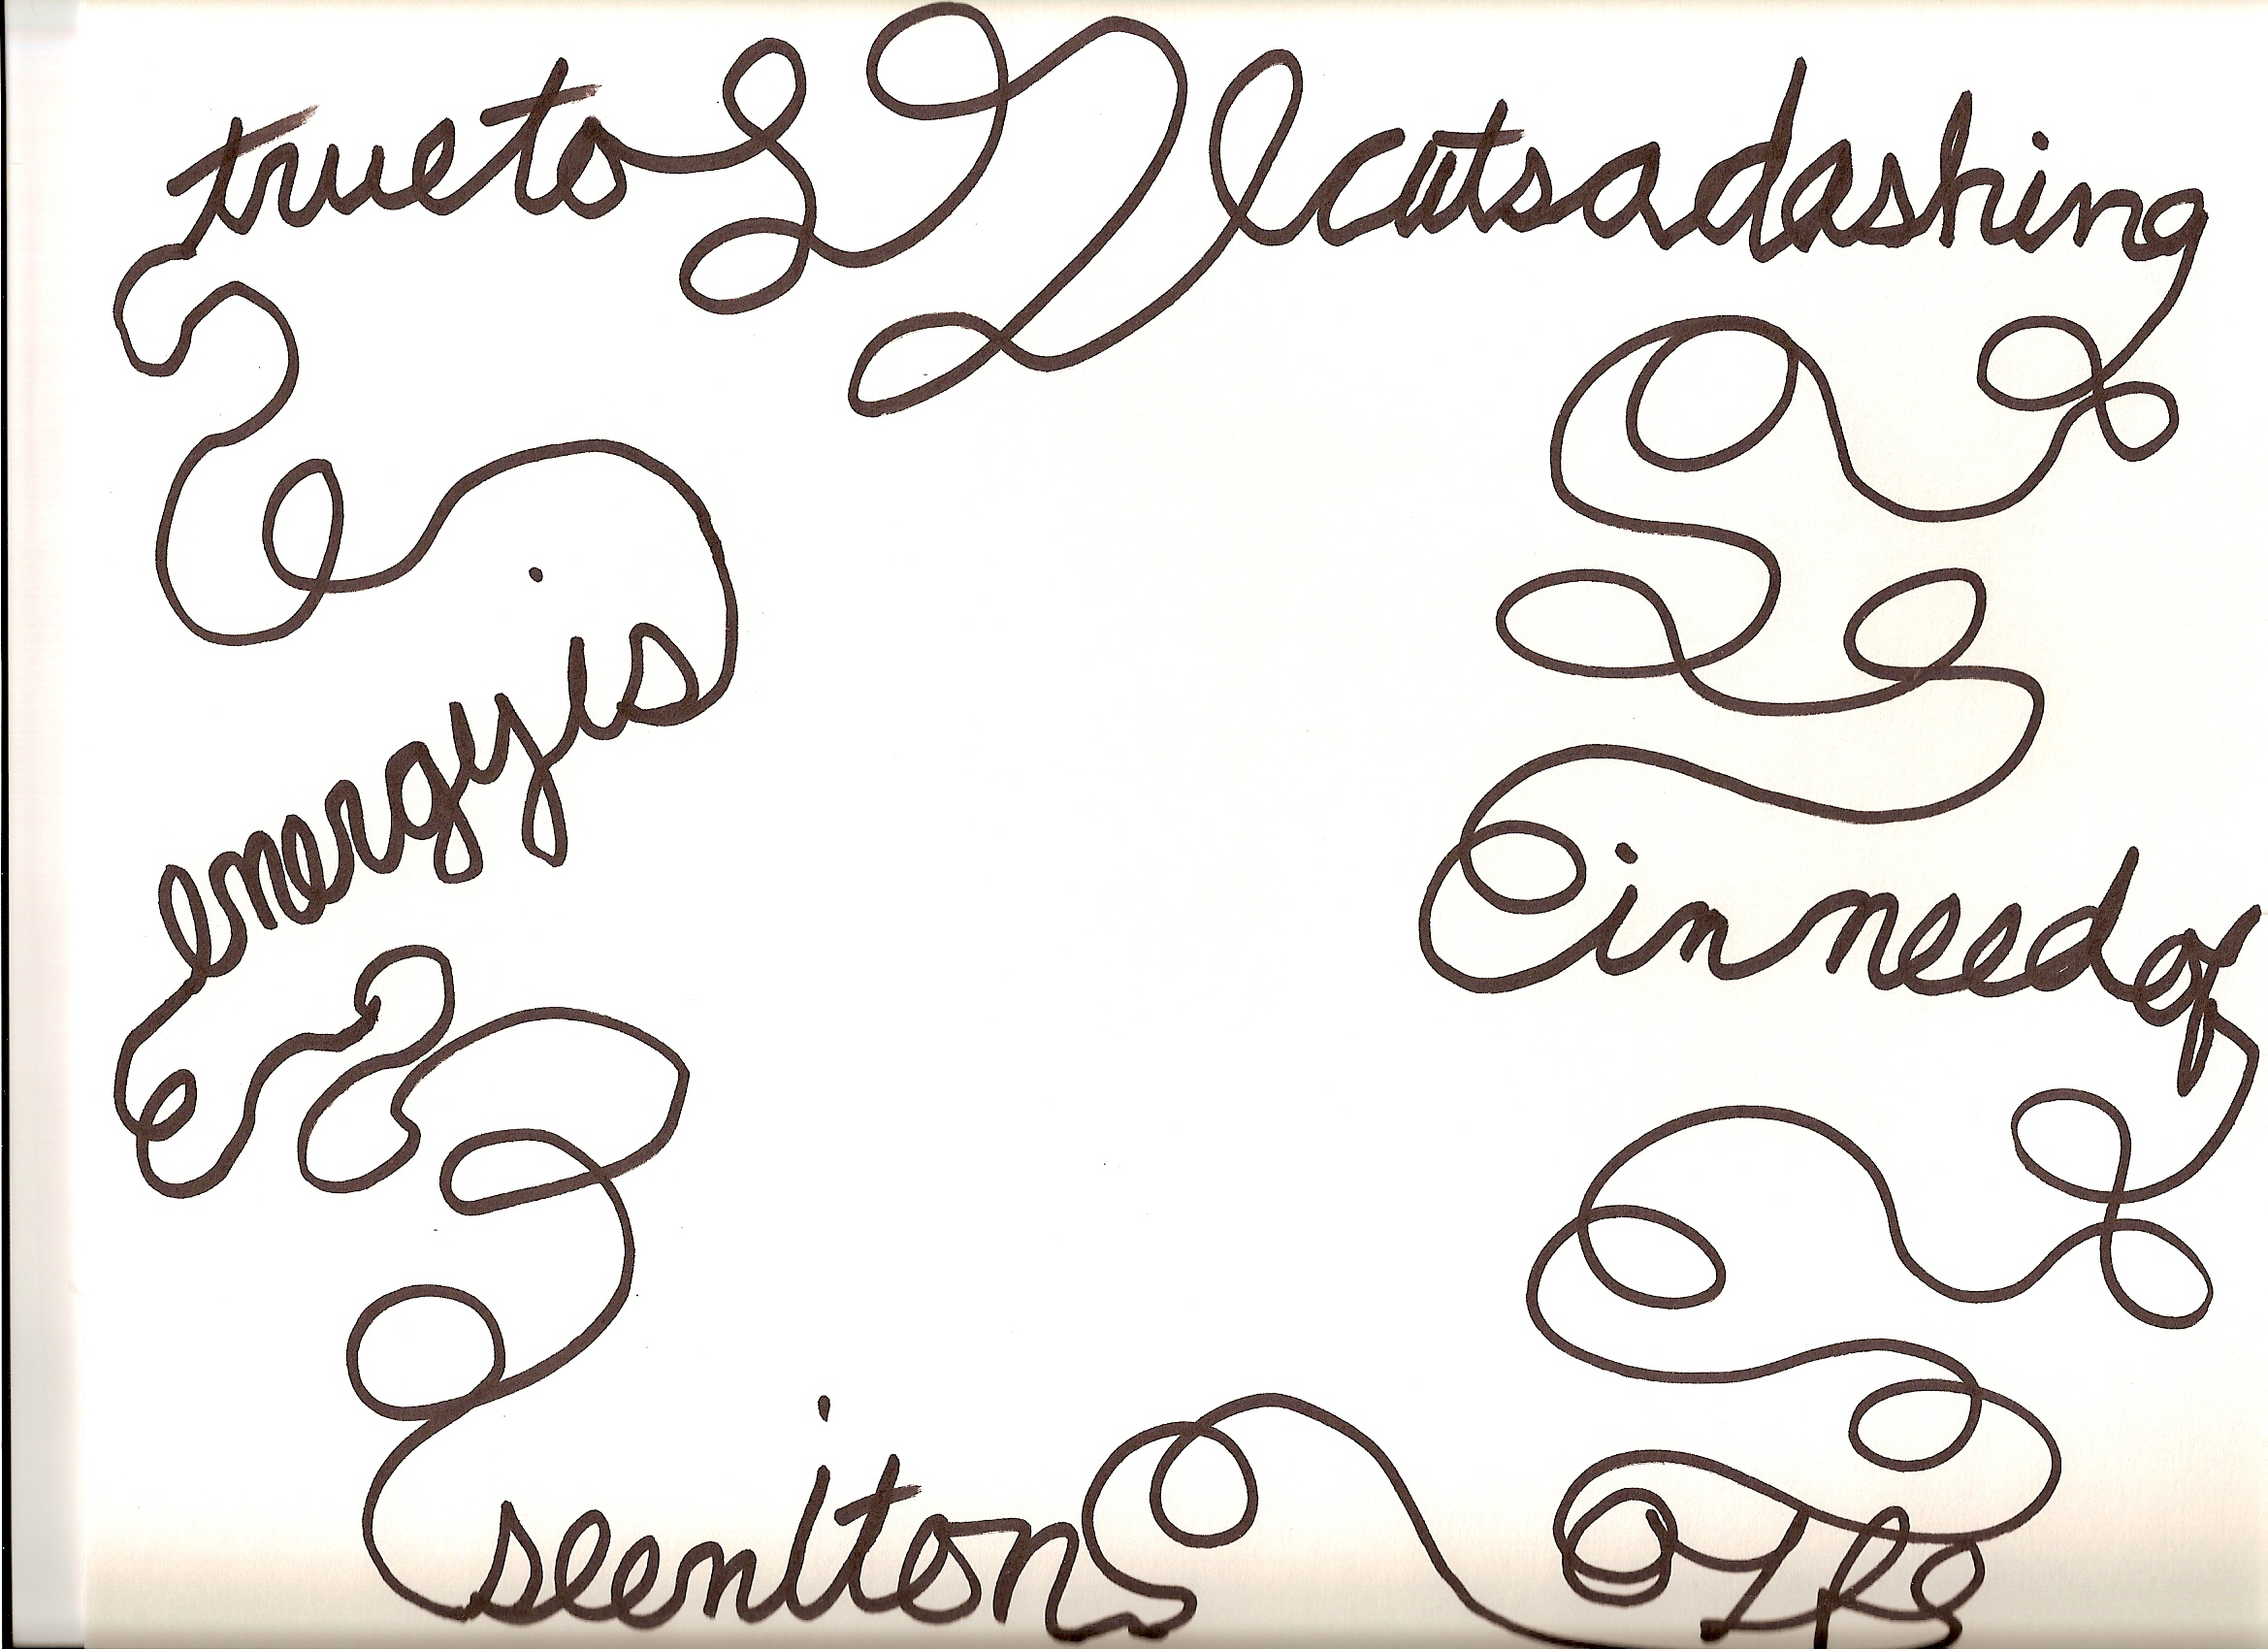 trueto cutsadashing
energyis
inneedof
seeniton